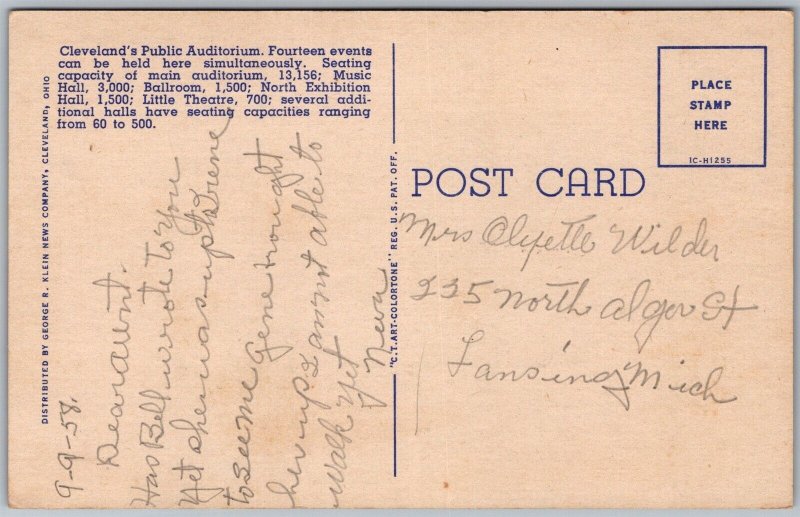 Cleveland's Public Auditorium. Fourteen events
can be held here simultaneously. Seating
capacity of main auditorium, 13,156; Music
Hall, 3,000; Ballroom, 1,500; North Exhibition
Hall, 1,500; Little Theatre, 700; several addi-
tional halls have seating capacities ranging
from 60 to 500.
DISTRIBUTED BY GEORGE R. KLEIN NEWS COMPANY, CLEVELAND, OHIO
9-9-58.
Dear aunt.
Has Bell wrote to you
yet she was up
to see me Gene brought
her up I am not able to
walk yet
Neva
"C.T. ART-COLORTONE" REG. U.S. PAT. OFF.
POST CARD
PLACE
STAMP
HERE
1C-H1255
Mrs Wilder
235 North Alger St
Lansing Mich